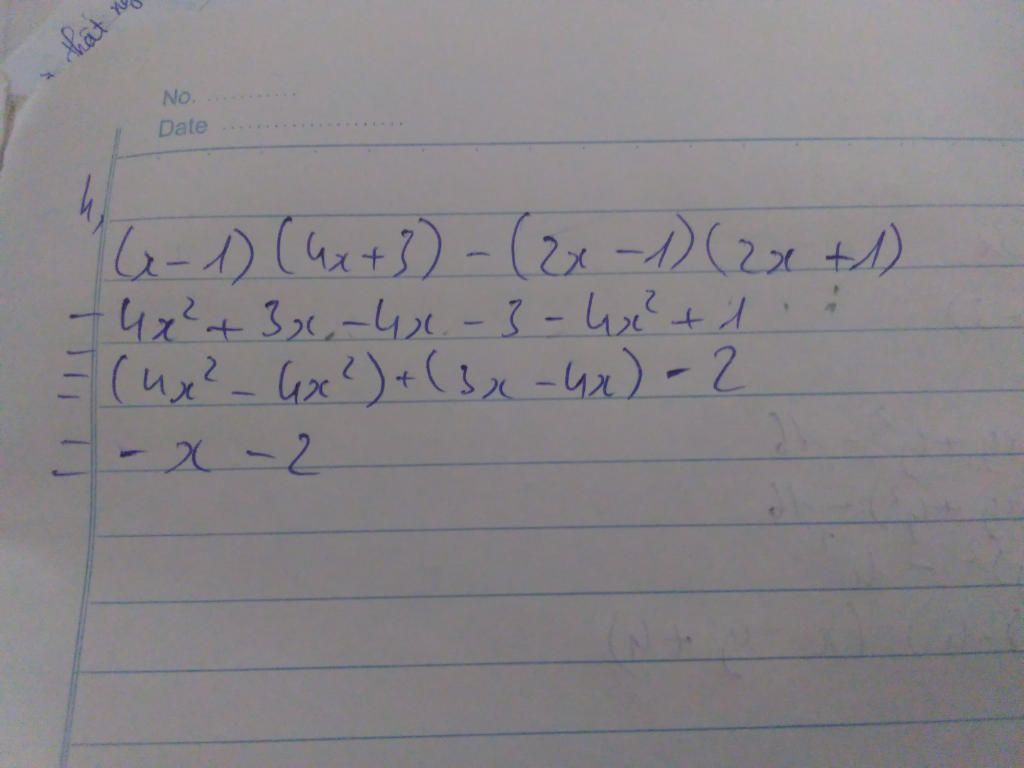 * thất ng
No. ...........
Date .....................
4,
(x-1)(4x+3) - (2x-1)(2x+1)
= 4x² + 3x - 4x - 3 - 4x² + 1
= (4x² - 4x²) + (3x - 4x) - 2
= - x - 2